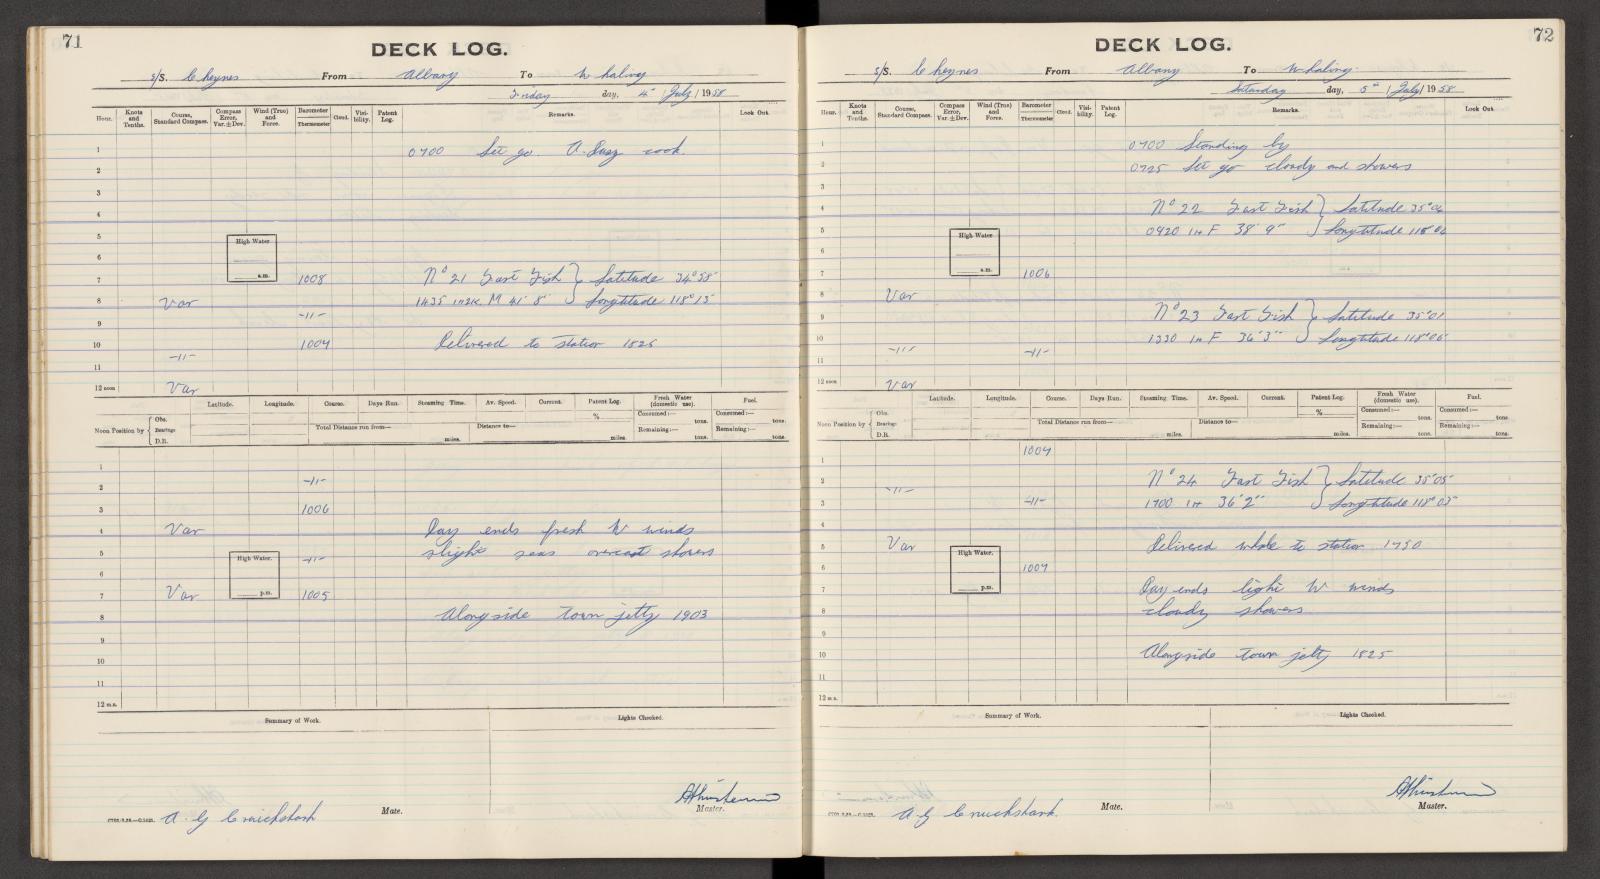 71
DECK LOG.
S/S. Cheynes From Albany To Whaling
Friday day, 4th July 1958
Hour. Knots and Tenths. Course, Standard Compass. Compass Error, Var. ± Dev. Wind (True) and Force. Barometer Thermometer Cloud. Visibility. Patent Log. Remarks. Look Out.
1 0700 Let go. cook
2
3
4
5 High Water
6
7 a.m. 1008 No 21 Fast Fish } Latitude 34°58'
8 Var 1435 M 41' 8" } Longtitude 118°15'
9 -11-
10 1004 Delivered to station 1825
-11-
11
12 noon Var
Latitude. Longitude. Course. Days Run. Steaming Time. Av. Speed. Current. Patent Log. Fresh Water (domestic use). Fuel.
Noon Position by { Obs. Bearings D.R. Total Distance run from— miles. Distance to— miles. % Consumed:— tons. Remaining:— tons. Consumed:— tons. Remaining:— tons.
1
2 -11-
3 1006
4 Var Day ends fresh W winds
5 High Water. -11- slight seas overcast showers
6
7 Var p.m. 1005
8 Alongside town jetty 1903
9
10
11
12 m.n.
Summary of Work. Lights Checked.
A. G Cruickshank Mate. Master.
72
DECK LOG.
S/S. Cheynes From Albany To Whaling
Saturday day, 5th July 1958
Hour. Knots and Tenths. Course, Standard Compass. Compass Error, Var. ± Dev. Wind (True) and Force. Barometer Thermometer Cloud. Visibility. Patent Log. Remarks. Look Out.
1 0700 Standing by
2 0725 Let go cloudy and showers
3
4 No 22 Fast Fish } Latitude 35°04
5 High Water 0920 1H F 38' 9" } Longtitude 118°06
6
7 a.m. 1006
8 Var
9 No 23 Fast Fish } Latitude 35°01
10 1330 1H F 36'3" } Longtitude 118°06'
11 -11- -11-
12 noon Var
Latitude. Longitude. Course. Days Run. Steaming Time. Av. Speed. Current. Patent Log. Fresh Water (domestic use). Fuel.
Noon Position by { Obs. Bearings D.R. Total Distance run from— miles. Distance to— miles. % Consumed:— tons. Remaining:— tons. Consumed:— tons. Remaining:— tons.
1 1004
2 -11- No 24 Fast Fish } Latitude 35°05'
3 -11- 1700 1H 36'2" } Longtitude 118°03'
4
5 Var High Water. Delivered whale to station 1750
6 1007
7 p.m. Day ends light W winds
8 cloudy showers
9
10 Alongside town jetty 1825
11
12 m.n.
Summary of Work. Lights Checked.
A. G Cruickshank. Mate. Master.